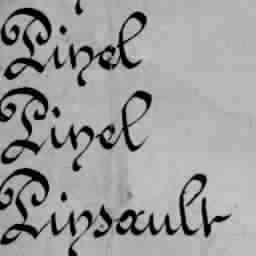 Pinel
Pinel
Pinsault